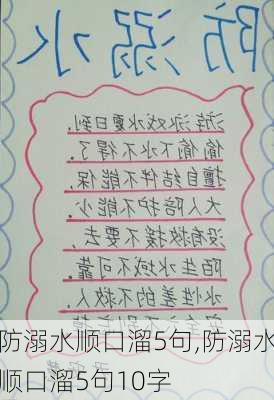 防溺水
游泳戏水夏日到,
偷偷下水不得了.
擅自结伴不能保,
大人陪护不能少.
没有救援不要去,
陌生水域不可靠.
水性差的不救人
防溺水顺口溜5句,防溺水
顺口溜5句10字